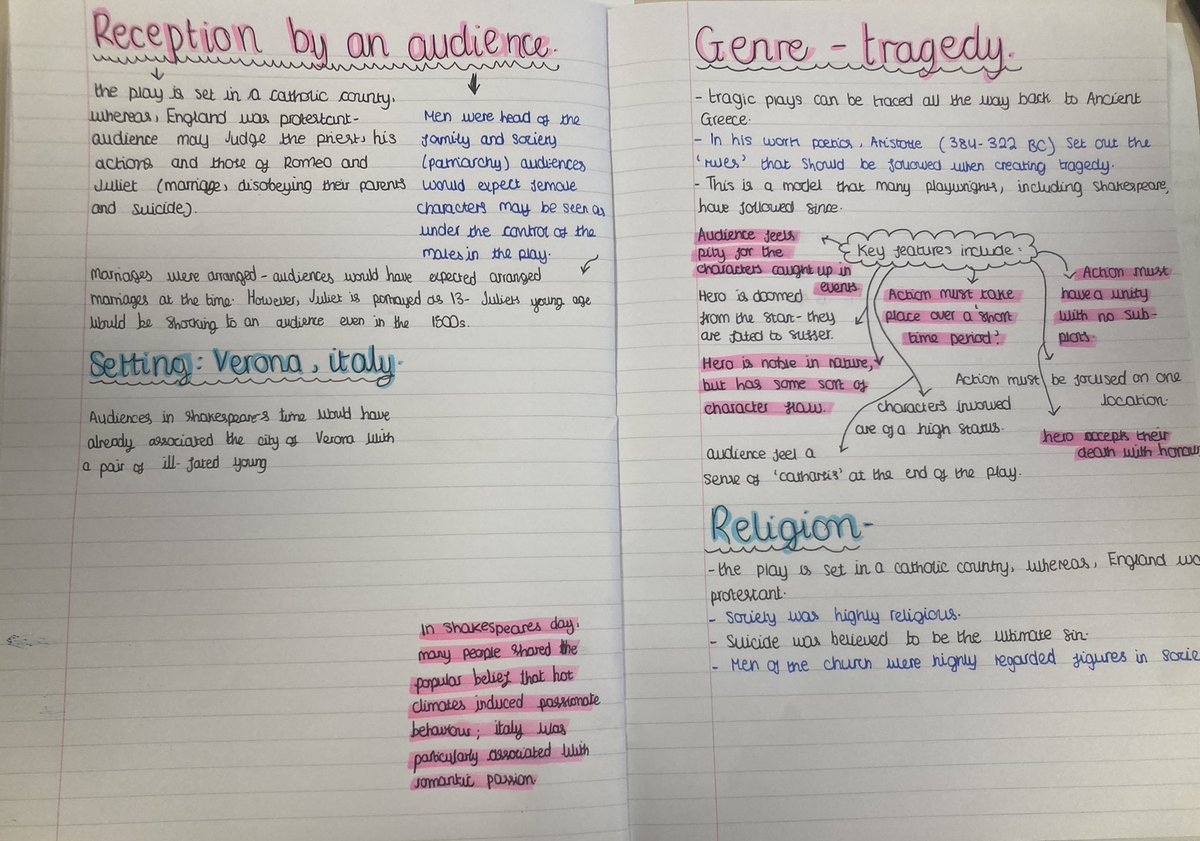 Reception by an audience.
the play is set in a catholic county,
whereas, England was protestant-
audience may Judge the priest, his
actions and those of Romeo and
Juliet (marriage, disobeying their parents
and suicide).
Men were head of the
family and society
(patriarchy) audiences
would expect female
characters may be seen as
under the control of the
males in the play.
Marriages were arranged - audiences would have expected arranged
marriages at the time. However, Juliet is portrayed as 13- Juliets young age
would be shocking to an audience even in the 1500s.
Setting: Verona, italy.
Audiences in shakespeare's time would have
already associated the city of Verona with
a pair of ill-fated young
In shakespeares day,
many people shared the
popular belief that hot
climates induced passionate
behaviour; italy was
particularly associated with
romantic passion.
Genre - tragedy.
- tragic plays can be traced all the way back to Ancient
Greece.
- In his work poetics, Aristotle (384-322 BC) set out the
'rules' that should be followed when creating tragedy.
- This is a model that many playwrights, including shakespeare,
have followed since.
Key features include:
Audience feels
pity for the
characters caught up in
events
Hero is doomed
from the start - they
are fated to suffer.
Action must take
place over a 'short
time period'.
Action must
have a unity
with no sub-
plots.
Hero is noble in nature,
but has some sort of
character flaw.
characters involved
are of a high status.
Action must be focused on one
location.
hero accepts their
death with honour
audience feel a
sense of 'catharsis' at the end of the play.
Religion-
- the play is set in a catholic country, whereas, England wa
protestant.
- Society was highly religious.
- Suicide was believed to be the ultimate sin.
- Men of the church were highly regarded figures in socie